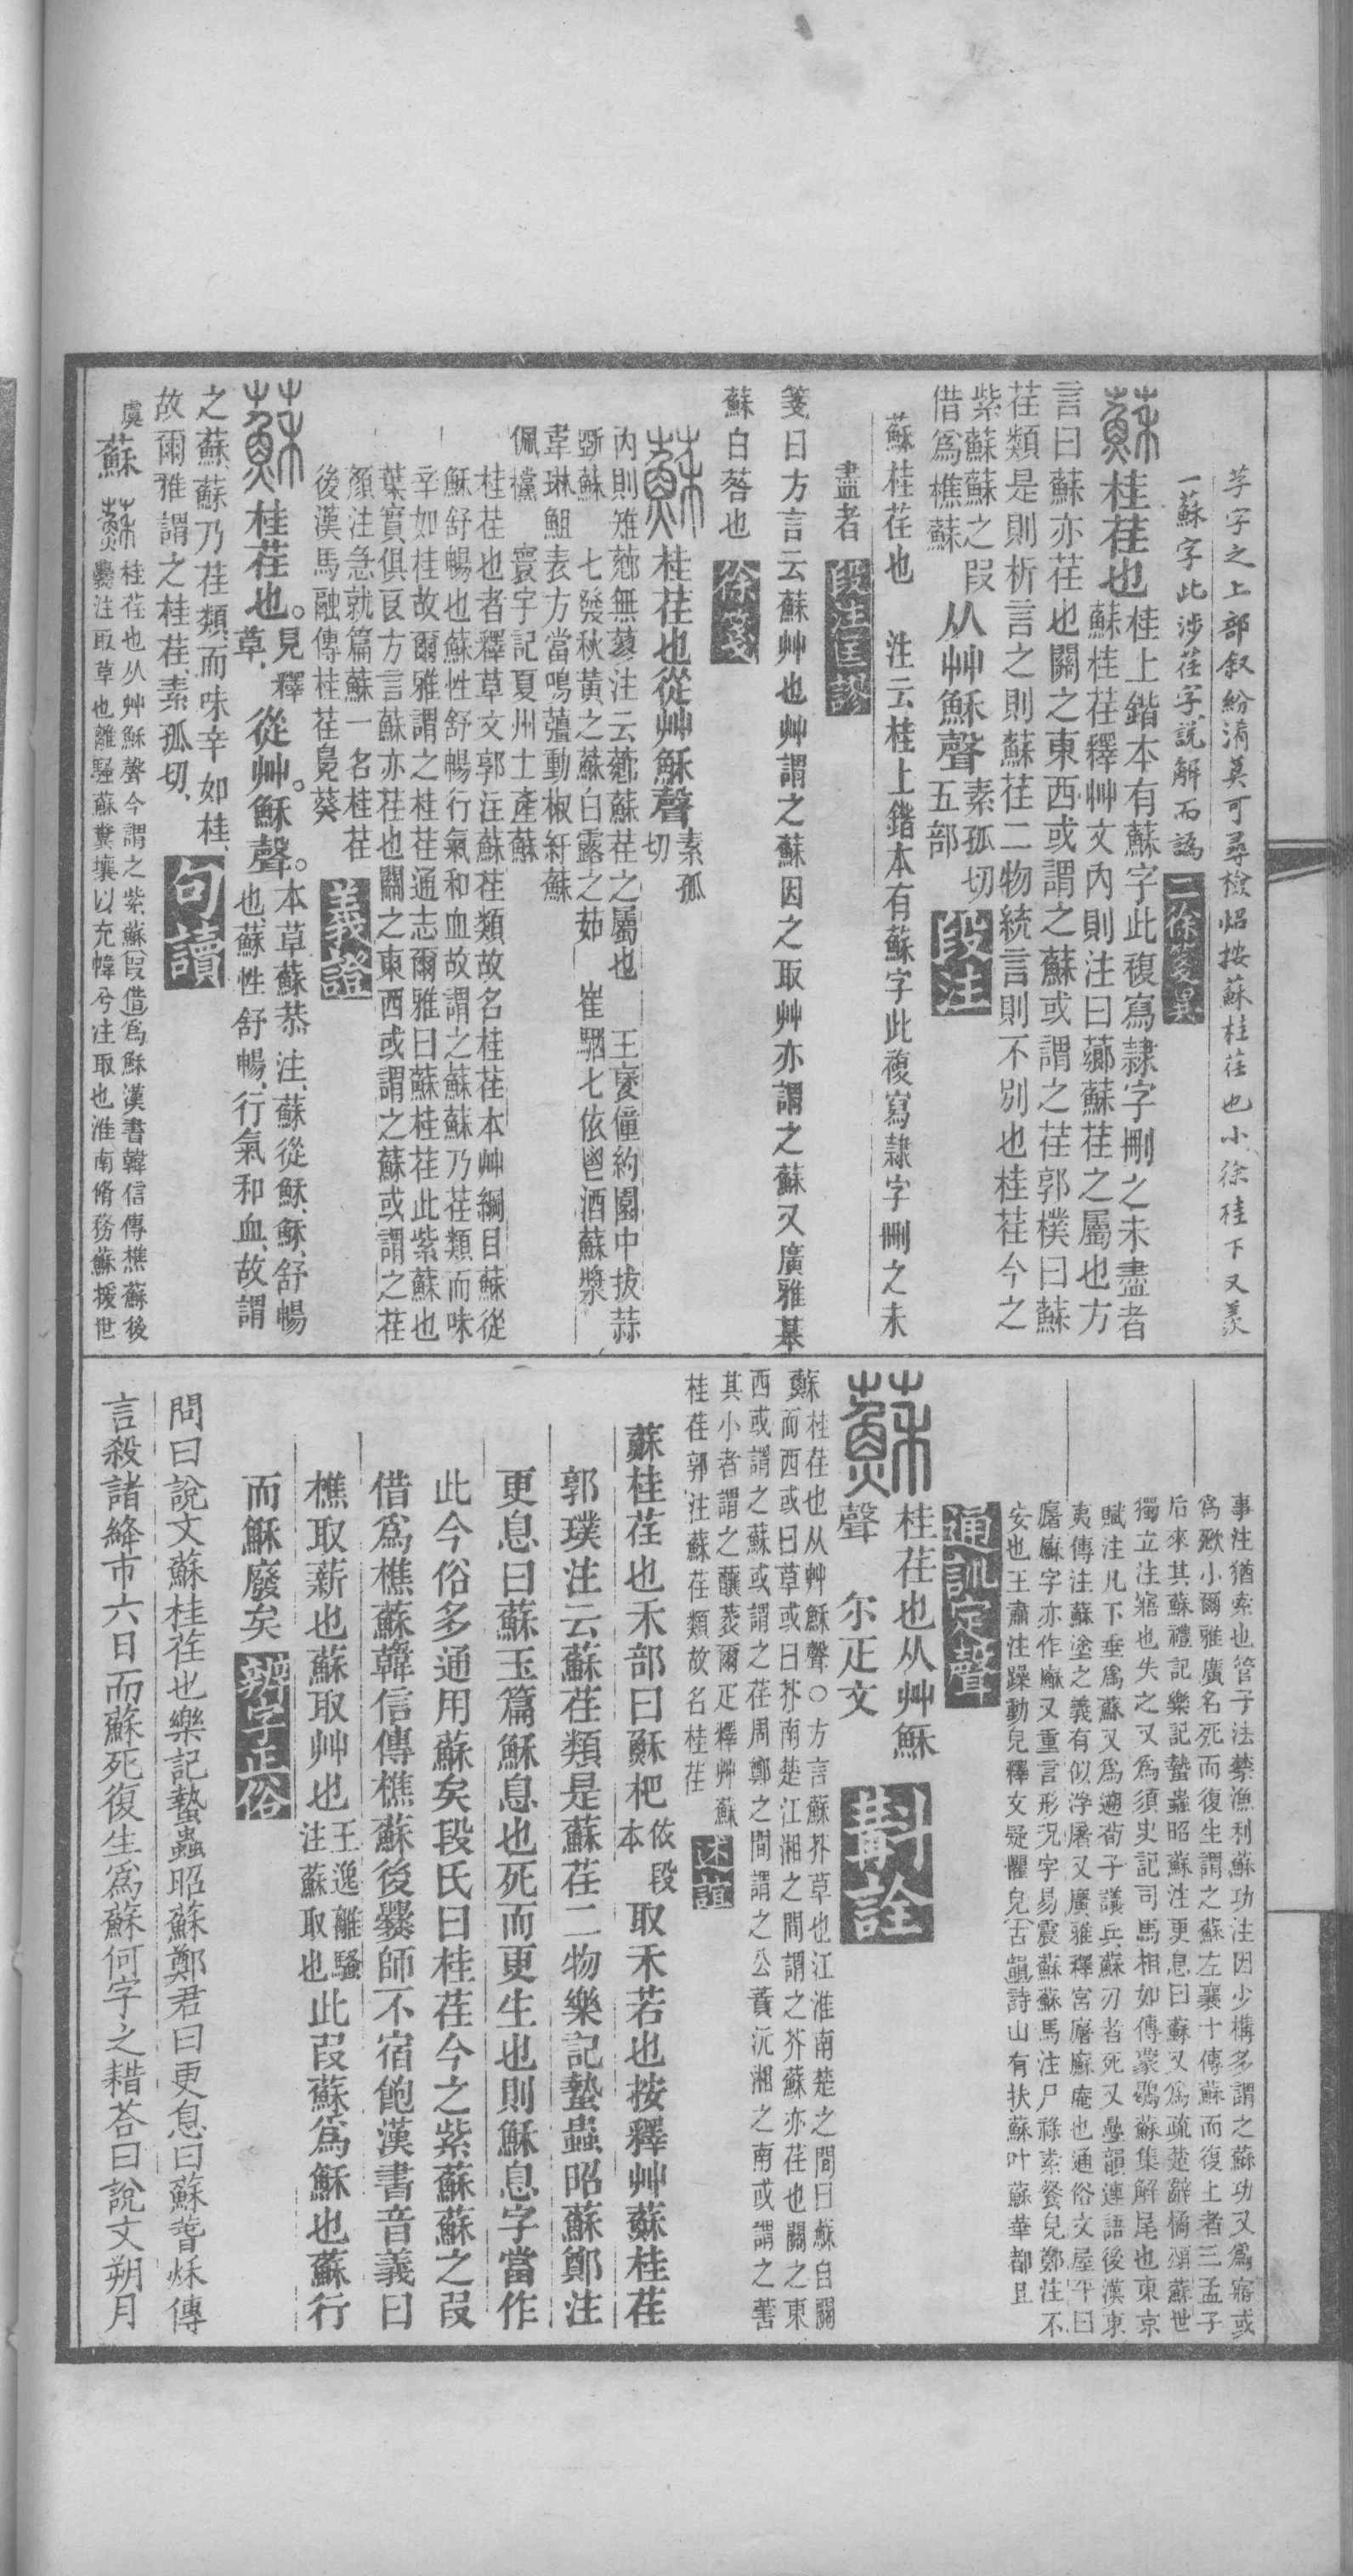 芓字之上部叙紛淆莫可尋檢怊按蘇桂荏也小徐桂下又羨
一蘇字此涉荏字說解而譌 二徐箋異
蘇 桂荏也 桂上鍇本有蘇字此複寫隷字刪之未盡者
蘇桂荏釋艸文內則注曰薌蘇荏之屬也方
言曰蘇亦荏也關之東西或謂之蘇或謂之荏郭樸曰蘇
荏類是則析言之則蘇荏二物統言則不別也桂荏今之
紫蘇蘇之叚
借爲樵蘇 从艸穌聲 素孤切
五部 段注
蘇桂荏也 注云桂上鍇本有蘇字此複寫隷字刪之未
盡者 段注匡謬
箋曰方言云蘇艸也艸謂之蘇因之取艸亦謂之蘇又廣雅䓶
蘇白䓫也 徐箋
蘇 桂荏也從艸穌聲 素孤
切
內則雉薌無蓼注云薌蘇荏之屬也 王褒僮約園中拔蒜
斲蘇 七發秋黃之蘇白露之茹 崔駰七依鬯酒蘇漿
韋琳䱇表方當鳴薑動椒紆蘇
佩欓 寰宇記夏州土產蘇
桂荏也者釋草文郭注蘇荏類故名桂荏本艸綱目蘇從
穌舒暢也蘇性舒暢行氣和血故謂之蘇蘇乃荏類而味
辛如桂故爾雅謂之桂荏通志爾雅曰蘇桂荏此紫蘇也
葉實俱良方言蘇亦荏也關之東西或謂之蘇或謂之荏
顏注急就篇蘇一名桂荏
後漢馬融傳桂荏鳧葵 義證
蘇 桂荏也。 見釋
草、 從艸。穌聲。 本草蘇恭注、蘇從穌、穌、舒暢
也、蘇性舒暢、行氣和血、故謂
之蘇、蘇乃荏類、而味辛如桂、
故爾雅謂之桂荏、素孤切、 句讀
虞 蘇 蘇 桂荏也从艸穌聲今謂之紫蘇叚借爲穌漢書韓信傳樵蘇後
爨注取草也離騷蘇糞壤以充幃兮注取也淮南脩務蘇援世
事注猶索也管子法禁漁利蘇功注因少構多謂之蘇功又爲寤或
爲㱆小爾雅廣名死而復生謂之蘇左襄十傳蘇而復上者三孟子
后來其蘇禮記樂記蟄蟲昭蘇注更息曰蘇又爲疏楚辭橘頌蘇世
獨立注寤也失之又爲須史記司馬相如傳蒙鶡蘇集解尾也東京
賦注凡下垂爲蘇又爲遡荀子議兵蘇刃者死又疊韻連語後漢東
夷傳注蘇塗之義有似浮屠又廣雅釋宮廜㢝庵也通俗文屋平曰
廜㢝字亦作㢝又重言形況字易震蘇蘇馬注尸祿素餐皃鄭注不
安也王肅注躁動皃釋文疑懼皃古韻詩山有扶蘇叶蘇華都且
通訓定聲
蘇 桂荏也从艸穌
聲 尔疋文 斠詮
蘇桂荏也从艸穌聲○方言蘇芥草也江淮南楚之間曰蘇自關
而西或曰草或曰芥南楚江湘之間謂之芥蘇亦荏也關之東
西或謂之蘇或謂之荏周鄭之間謂之公蕡沅湘之南或謂之䔬
其小者謂之蘸葇爾疋釋艸蘇
桂荏郭注蘇荏類故名桂荏 述誼
蘇桂荏也禾部曰穌杷 依段
本 取禾若也按釋艸蘇桂荏
郭璞注云蘇荏類是蘇荏二物樂記蟄蟲昭蘇鄭注
更息曰蘇玉篇穌息也死而更生也則穌息字當作
此今俗多通用蘇矣段氏曰桂荏今之紫蘇蘇之叚
借爲樵蘇韓信傳樵蘇後爨師不宿飽漢書音義曰
樵取薪也蘇取艸也 王逸離騷
注蘇取也 此叚蘇爲穌也蘇行
而穌廢矣 辨字正俗
問曰說文蘇桂荏也樂記蟄蟲昭蘇鄭君曰更息曰蘇晉穌傳
言殺諸絳市六日而蘇死復生爲蘇何字之耤荅曰說文朔月